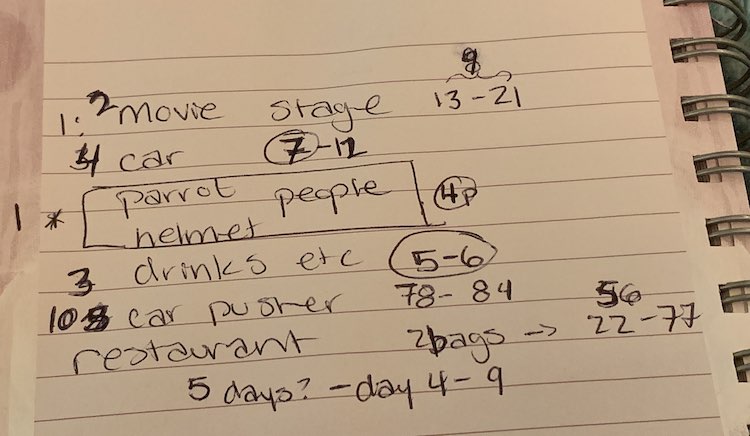 9
1: 2 movie stage 13-21
4 car 7-12
1 * parrot people 4p
helmet
3 drinks etc 5-6
10 car pusher 78-84
56
restaurant 2bags -> 22-77
5 days? - day 4-9